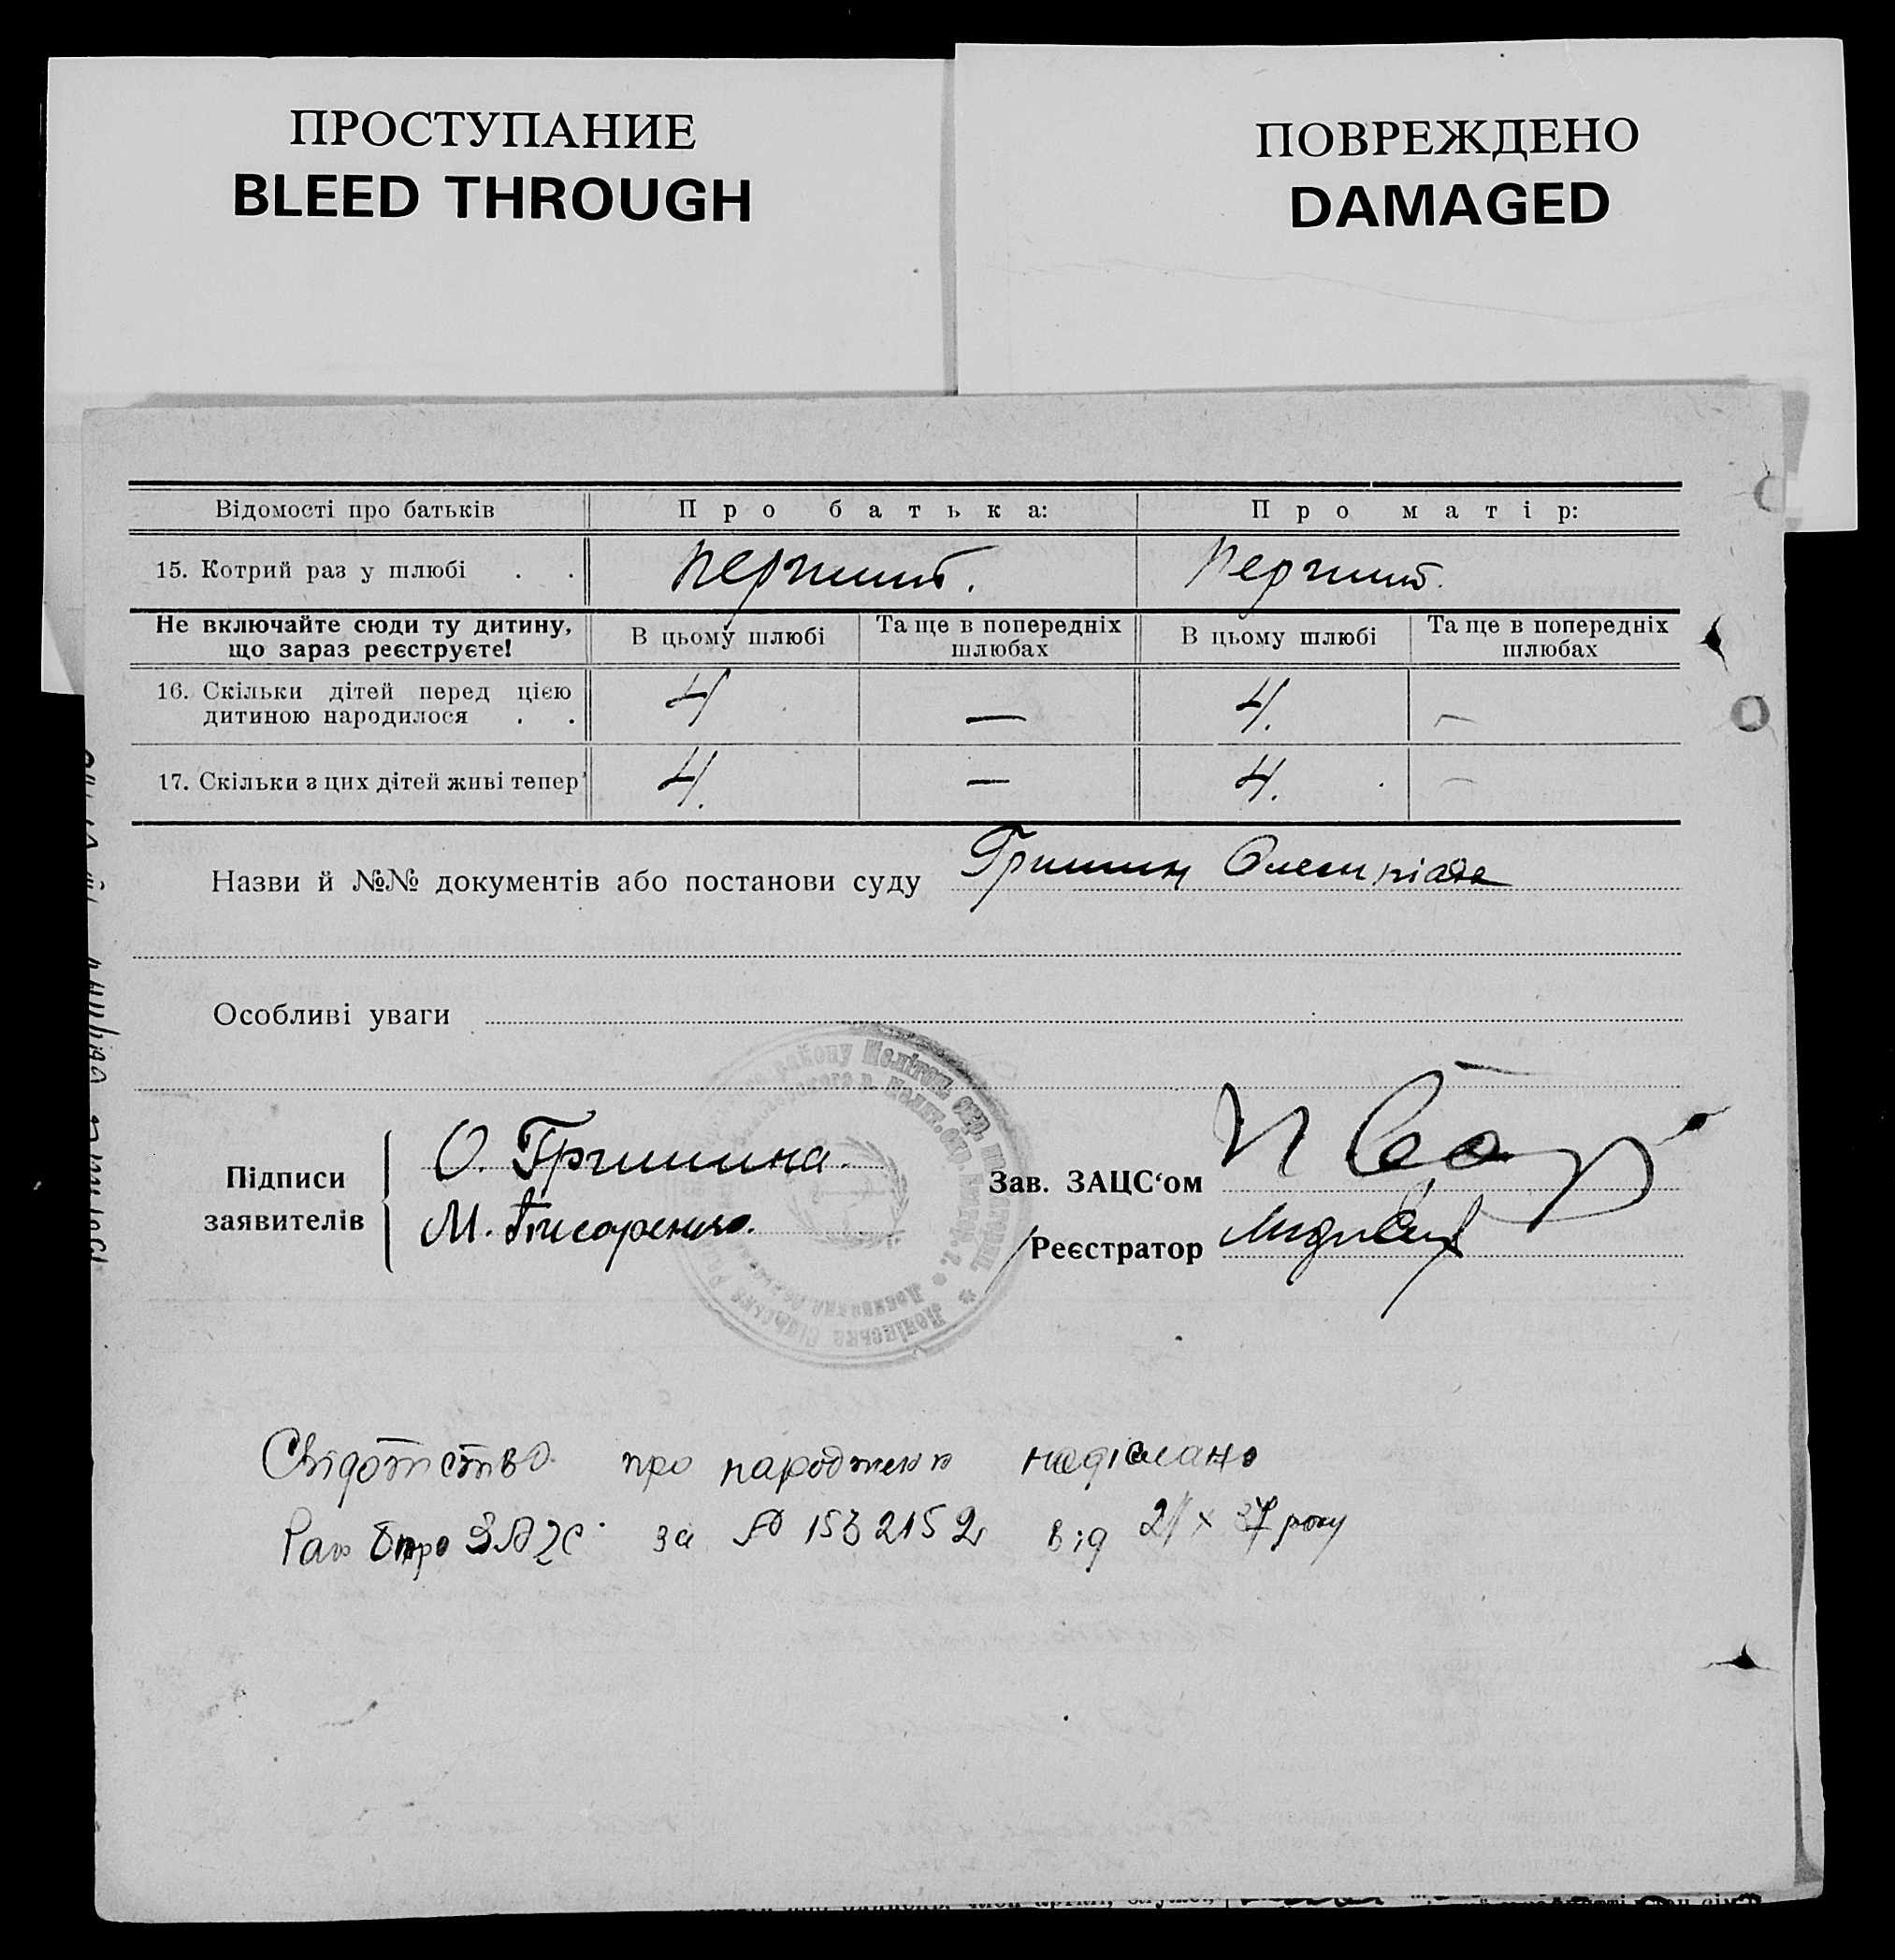 ПРОСТУПАНИЕ
BLEED THROUGH
ПОВРЕЖДЕНО
DAMAGED
Відомості про батьків Про батька: Про матір:
15. Котрий раз у шлюбі . . перший. перший.
Не включайте сюди ту дитину, що зараз реєструєте! В цьому шлюбі Та ще в попередніх шлюбах В цьому шлюбі Та ще в попередніх шлюбах
16. Скільки дітей перед цією
дитиною народилося . . 4 — 4. —
17. Скільки з цих дітей живі тепер 4. — 4. —
Назви й №№ документів або постанови суду Гришин
Особливі уваги
Підписи заявителів
О. Гришина.
М. Писаренко.
Зав. ЗАЦС‘ом
Реєстратор
Свідотство про народженя надіслано
бюро ЗАГС за № 1532152 від 21 X 37 року